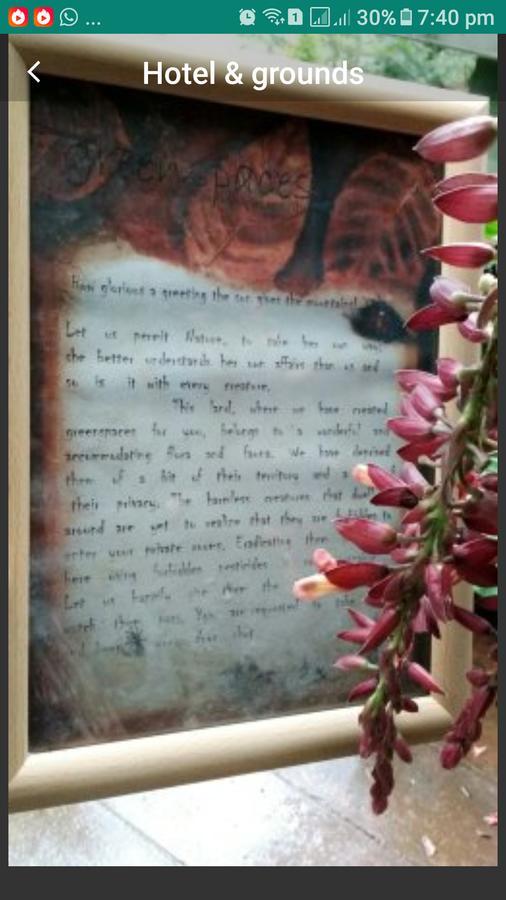 ... 1 30% 7:40 pm
Hotel & grounds
Green spaces
How glorious a greeting the sun gives the mountains!
Let us permit Nature, to take her own way;
she better understands her own affairs than us and
so is it with every creature.
This land, where we have created
greenspaces for you, belongs to a wonderful and
accommodating flora and fauna. We have deprived
them of a bit of their territory and a
their privacy. The harmless creatures that
around are yet to realize that they are to
enter your private rooms. Eradicating them
here using forbidden pesticides
Let us happily the
watch them pass. You are requested to take
door shut